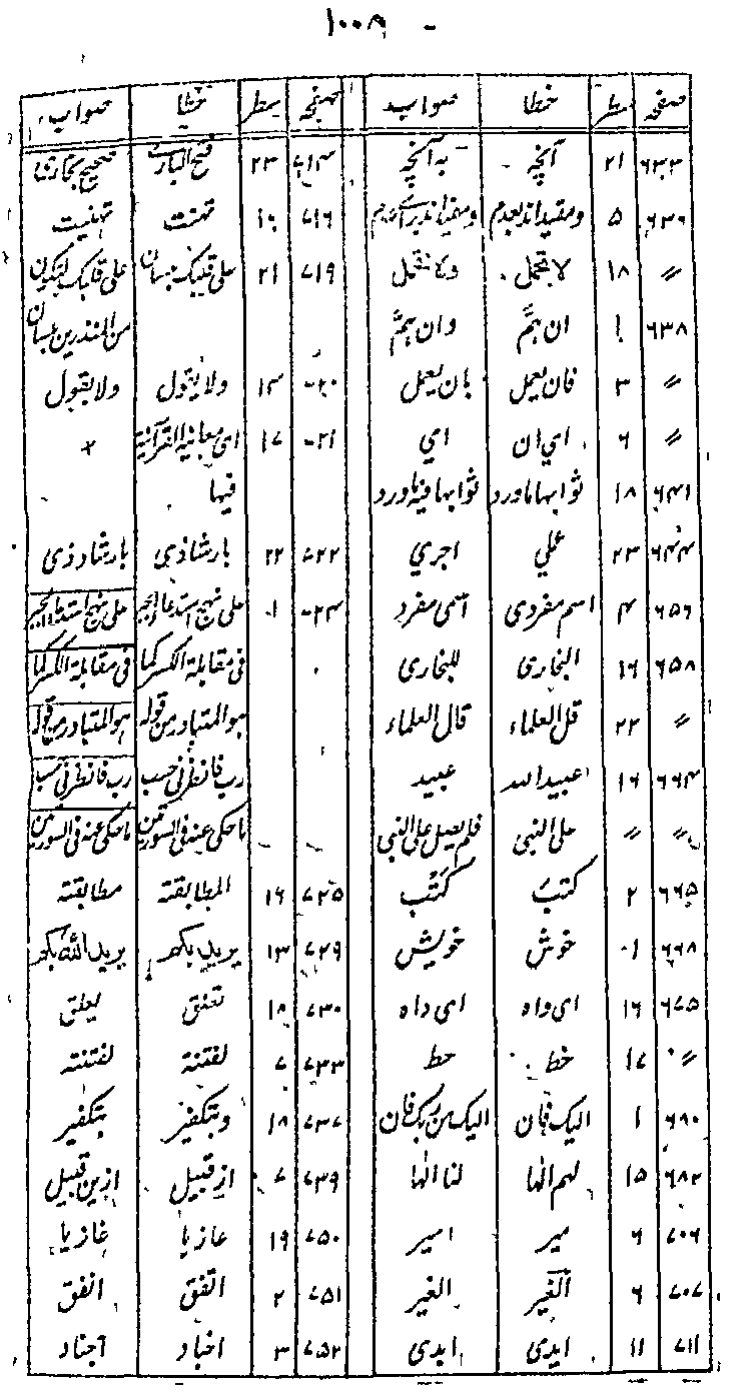 ۱۰۰۸ -
صفحه سطر خطا صواب صفحه سطر خطا صواب
۶۳۳ ۲۱ آنچه به آنچه ۷۱۴ ۲۳ فتح الباری صحیح بخاری
۶۳۶ ۵ ومفیداند بعدم ۷۱۶ ۱۶ تهنت تهنیت
〃 ۱۸ لا تتحمل ولا تتحمل ۷۱۹ ۲۱ علی قلبک بلسان علی قلبک لتکون
۶۳۸ ۱ ان همّ وان همّ من المنذرین بلسان
〃 ۳ فان یعمل بان یعمل ۷۲۰ ۱۴ ولا یقول
〃 ۶ ای ان ای ۷۲۱ ۱۷ ای معانیه القرآنیة ×
۶۴۱ ۱۸ ثوابها ماورد ثوابها فیه ماورد فیها
۶۴۴ ۲۳ علي اجري ۷۲۲ ۲۲ بارشادی بارشاد ذی
۶۵۶ ۴ اسم مفردی اسمی مفرد ۷۲۴ ۱۰ علی نهج
۶۵۸ ۱۶ البخاری للبخاری فی مقابلة الکسر کما فی مقابلة الکسر کما
〃 ۲۲ قل العلماء قال العلماء هو المتبادر من قوله هو المتبادر من قوله
۶۶۴ ۱۶ عبیدالله عبید رب فانظرنی حسب رب فانظرنی حسب
〃 〃 علی النبی فلم یصل علی النبی ما حکی عنه فی السورتین ما حکی عنه فی السورتین من
۶۶۵ ۲ کتب کُتُب ۷۲۵ ۱۶ المطابقته مطابقته
۶۶۸ ۱۰ خوش خویش ۷۲۹ ۱۳ یرید بکم یرید الله بکم
۶۷۵ ۱۶ ای واه ای داه ۷۳۰ ۱۸ تعلق یعلق
〃 ۱۷ خط حط ۷۳۳ ۷ لفتنة لفتنته
۶۸۰ ۱ الیک فان الیک من ربک فان ۷۳۷ ۱۸ وبتکفیر بتکفیر
۶۸۲ ۱۵ لهم الها لنا الها ۷۳۹ ۷ از قبیل ازین قبیل
۷۰۶ ۶ میر امیر ۷۵۰ ۱۹ عازیا غازیا
۷۰۷ ۶ الغیر الغیر ۷۵۱ ۲ اتفق انفق
۷۱۱ ۱۱ ایدی ابدی ۷۵۲ ۳ اخباد آجناد